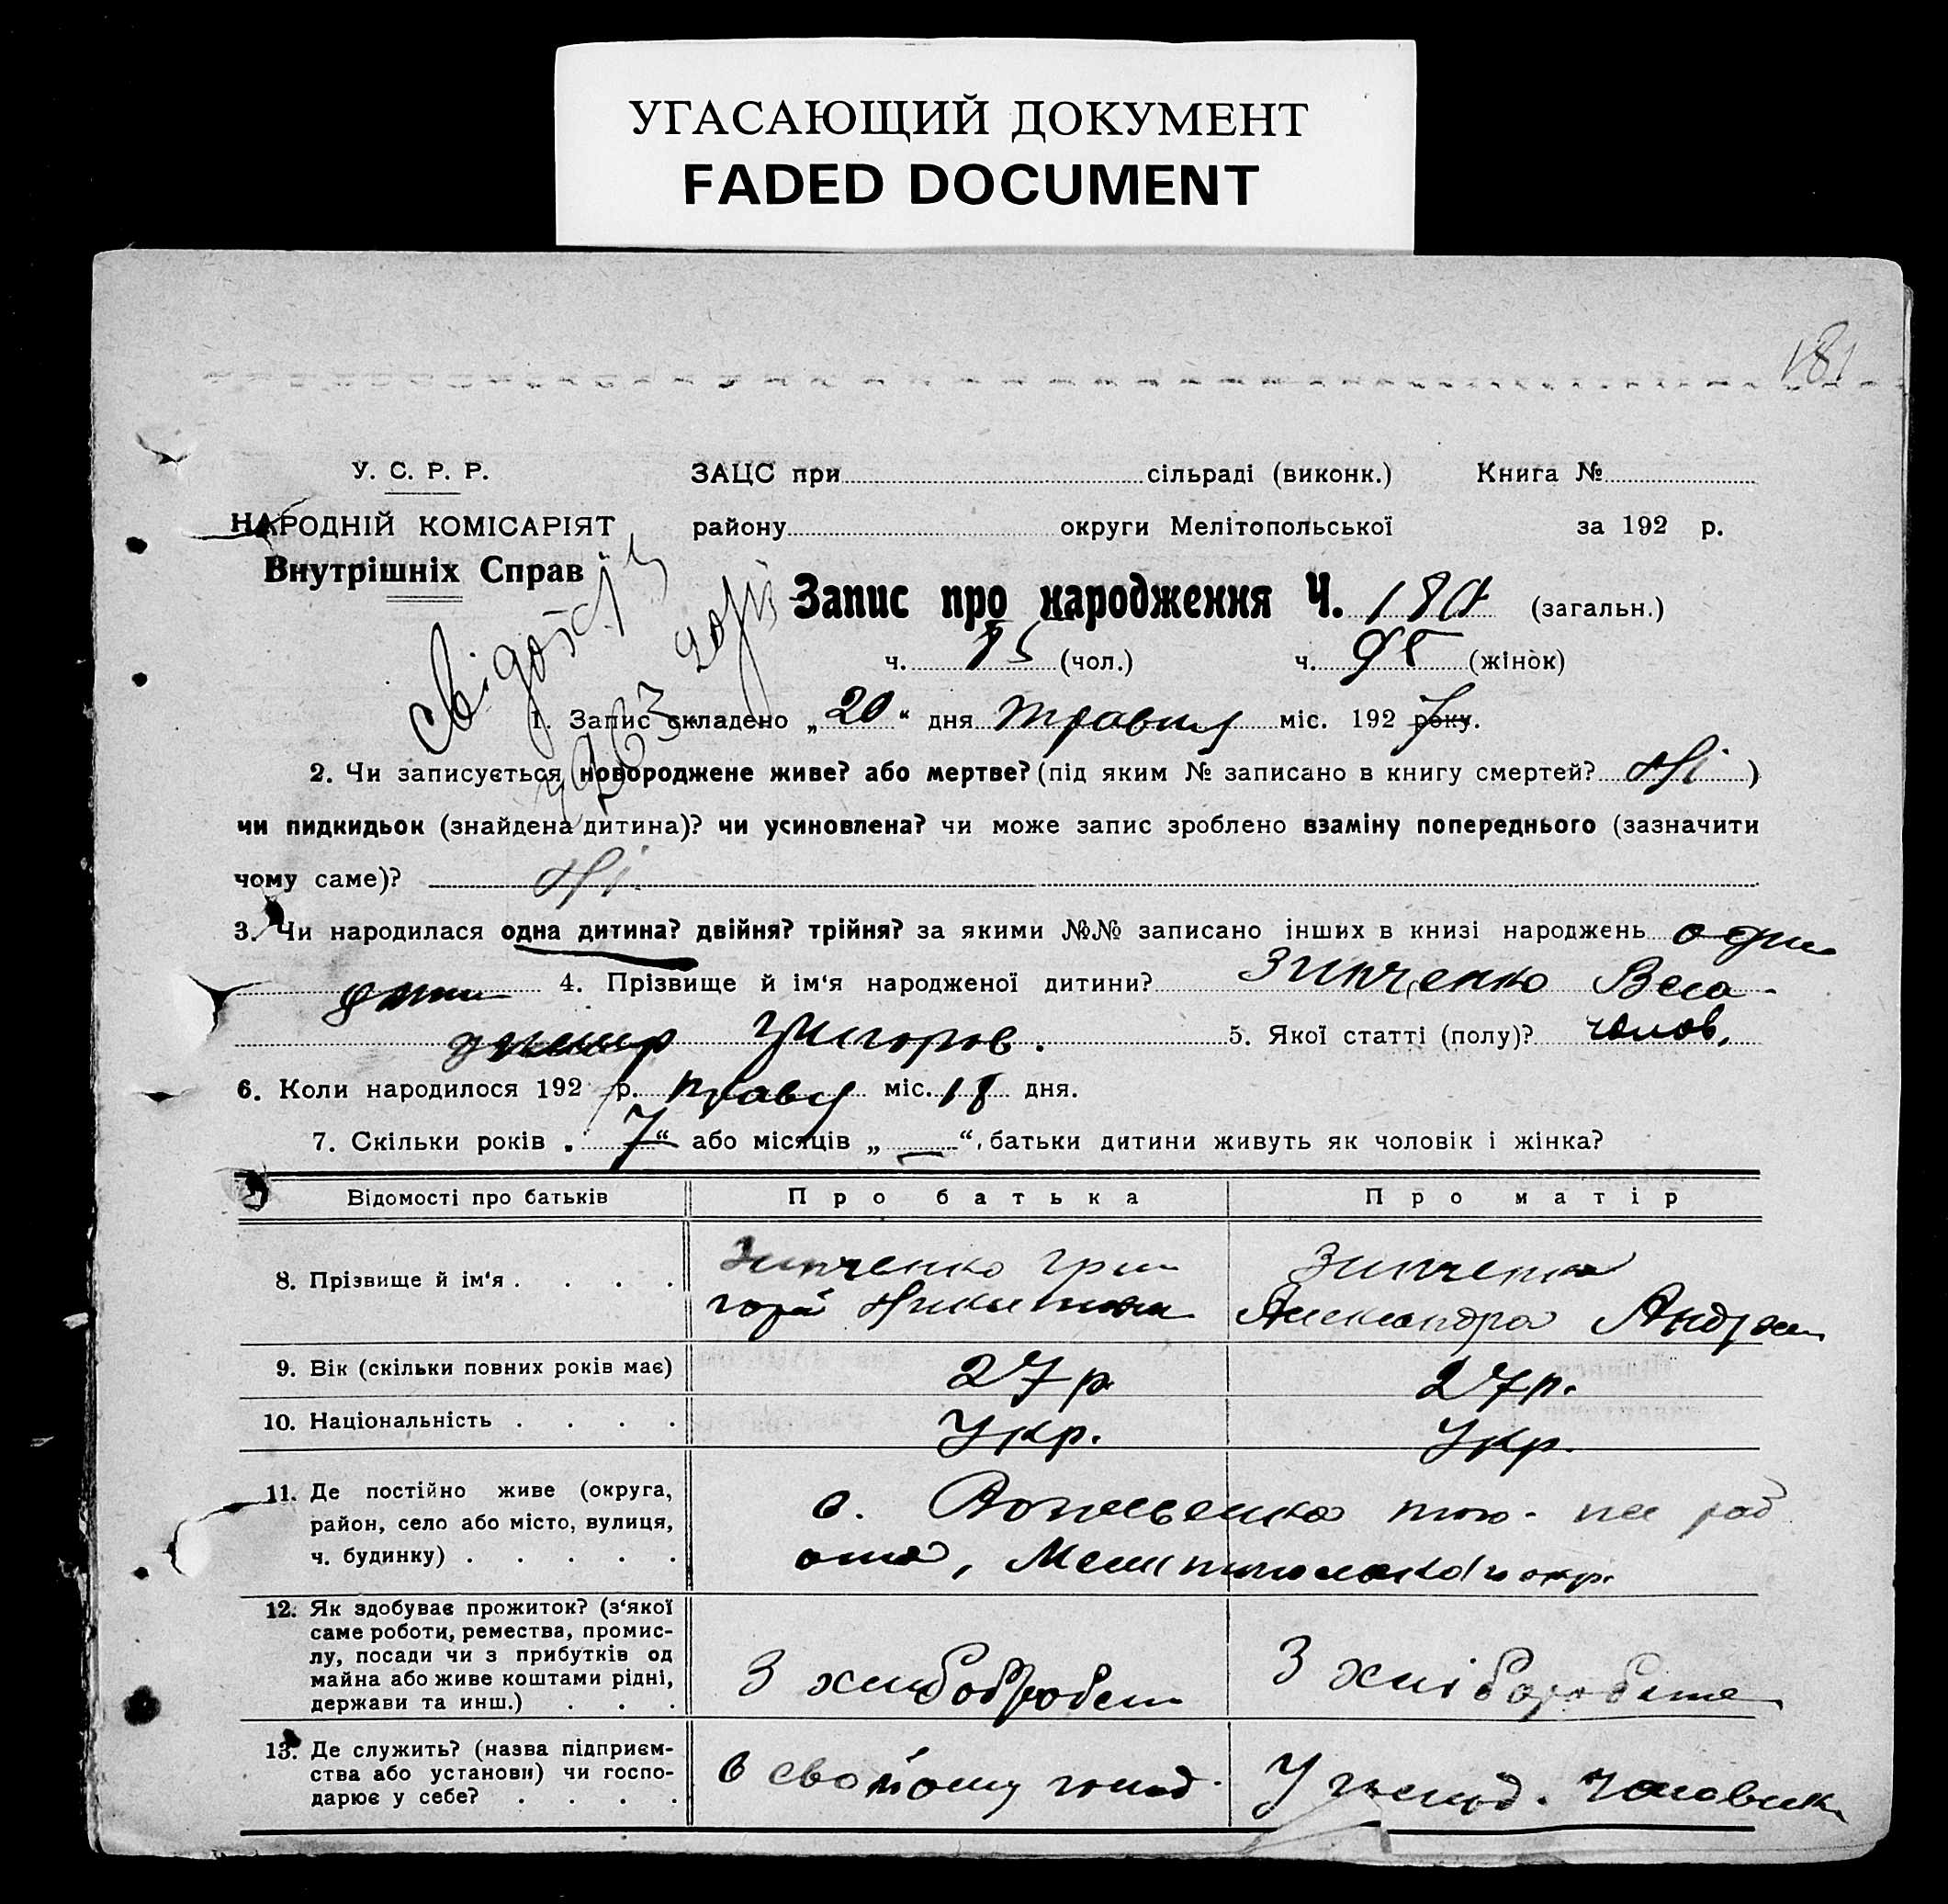 УГАСАЮЩИЙ ДОКУМЕНТ
FADED DOCUMENT
181
У. С. Р. Р.
ЗАЦС при сільраді (виконк.) Книга №
НАРОДНІЙ КОМІСАРІЯТ
району округи Мелітопольської за 192 р.
Внутрішніх Справ
Запис про народження Ч. 180 (загальн.)
ч. 85 (чол.) ч. 95 (жінок)
1. Запис складено „20“ дня травня міс. 192 року.
2. Чи записується новороджене живе? або мертве? (під яким № записано в книгу смертей? Ні )
чи пидкидьок (знайдена дитина)? чи усиновлена? чи може запис зроблено взаміну попереднього (зазначити
чому саме)? Ні.
3. Чи народилася одна дитина? двійня? трійня? за якими №№ записано інших в книзі народжень одна
дитин 4. Прізвище й ім‘я народженої дитини? Зинченко
Григоров. 5. Якої статті (полу)? чолов.
6. Коли народилося 192 р. травня міс. 18 дня.
7. Скільки років „7“ або місяців „—“, батьки дитини живуть як чоловік і жінка?
Відомості про батьків Про батька Про матір
8. Прізвище й ім‘я . . . . Зинченко Гри Зинченко
горій Никитови Александра Андреи
9. Вік (скільки повних років має) 27 р. 27 р.
10. Національність . . . . Укр. Укр.
11. Де постійно живе (округа,
район, село або місто, вулиця,
ч. будинку) . . . . .
с. тою-
Мелітопольської окр.
12. Як здобуває прожиток? (з‘якої
саме роботи, ремества, промис-
лу, посади чи з прибутків од
майна або живе коштами рідні,
держави та инш.) . . .
З хліборобст З хліборобства
13. Де служить? (назва підприєм-
ства або установи) чи госпо-
дарює у себе? . . . .
в свойому госпд. У господ. Чоловика